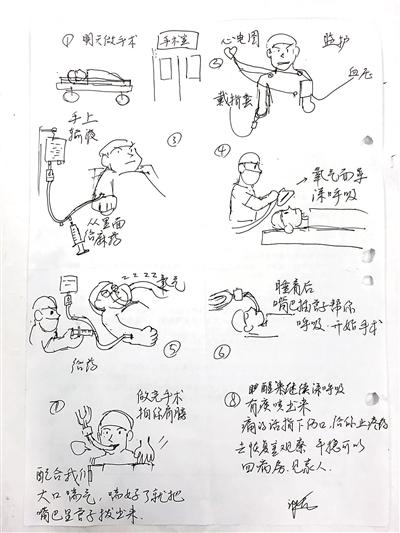 ① 明天做手术
手术室
② 心电图
监护
血压
戴指套
③
手上
输液
从里面
给麻药
④
氧气面罩
深呼吸
⑤
zzzz 氧气
给药
⑥
睡着后
嘴巴插管子帮你
呼吸.开始手术
⑦
做完手术
拍你肩膀
配合我们
大口喘气,喘好了就把
嘴巴里管子拔出来.
⑧ 醒来继续深呼吸
有痰咳出来
痛的话指下伤口,给你上疼药
去恢复室观察 平稳可以
回病房.见家人.